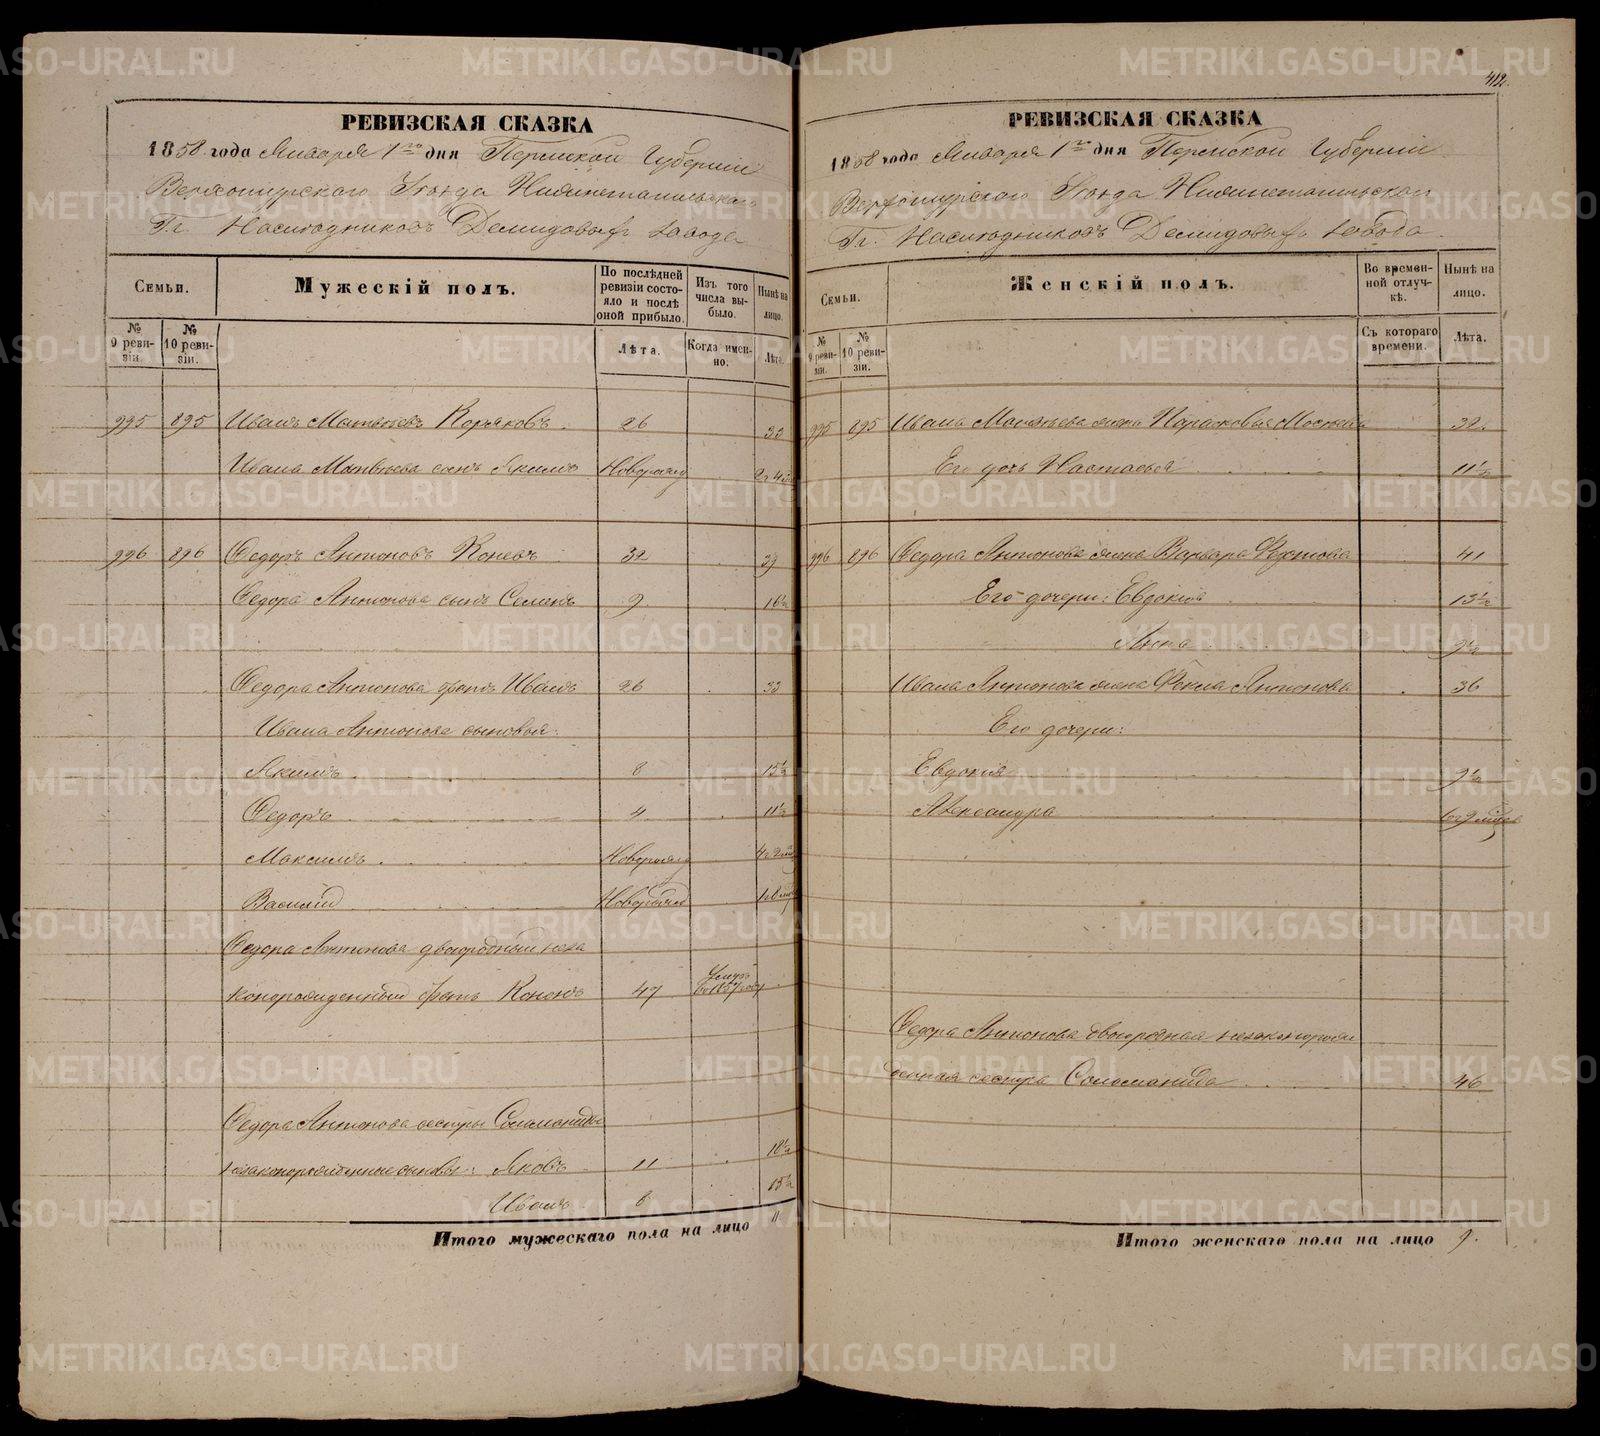 412.
РЕВИЗСКАЯ СКАЗКА
1858 года Января 1го дня Пермской Губерніи
Верхотурского Уѣзда Нижнетагильскаго
Гг. Наслѣдниковъ Демидовыхъ завода
Семьи.
Мужескій полъ.
По послѣдней ревизіи состояло и послѣ оной прибыло.
Изъ того числа выбыло.
Нынѣ на лицо.
№ 9 ревизіи.
№ 10 ревизіи.
Лѣта.
Когда именно.
Лѣта.
995 895 Иванъ Матвѣевъ Коряковъ 26 33
Ивана Матвѣева сынъ Якимъ Новорожд
996 896 Ѳедоръ Антоновъ Коневъ 32 39
Ѳедора Антонова сынъ Семенъ 9 16½
Ѳедора Антонова братъ Иванъ 26 33
Ивана Антонова сыновья:
Якимъ 8 15½
Ѳедоръ 4 11½
Максимъ Новорожд
Василій Новорожд
Ѳедора Антонова двоюродный неза
конорожденный братъ Кононъ 47 Умеръ въ 1857 году
Ѳедора Антонова сестры Соломониды
незаконорожденные сыновья: Яковъ 11 18½
Иванъ 8 15½
Итого мужескаго пола на лицо 11
РЕВИЗСКАЯ СКАЗКА
1858 года Января 1го дня Пермской Губерніи
Верхотурскаго Уѣзда Нижнетагильскаго
Гг. Наслѣдниковъ Демидовыхъ завода
Семьи.
Женскій полъ.
Во временной отлучкѣ.
Нынѣ на лицо.
№ 9 ревизіи.
№ 10 ревизіи.
Съ котораго времени.
Лѣта.
995 895 Ивана Матвѣева жена Парасковья 32
Его дочь Настасья 11½
996 896 Ѳедора Антонова жена Варвара 41
Его дочери: Евдокія 13½
Анна 9½
Ивана Антонова жена Ѳекла Антонова 36
Его дочери:
Евдокія 9½
Александра
Ѳедора Антонова двоюродная незаконорож
денная сестра Соломонида 46
Итого женскаго пола на лицо 9.
METRIKI.GASO-URAL.RU